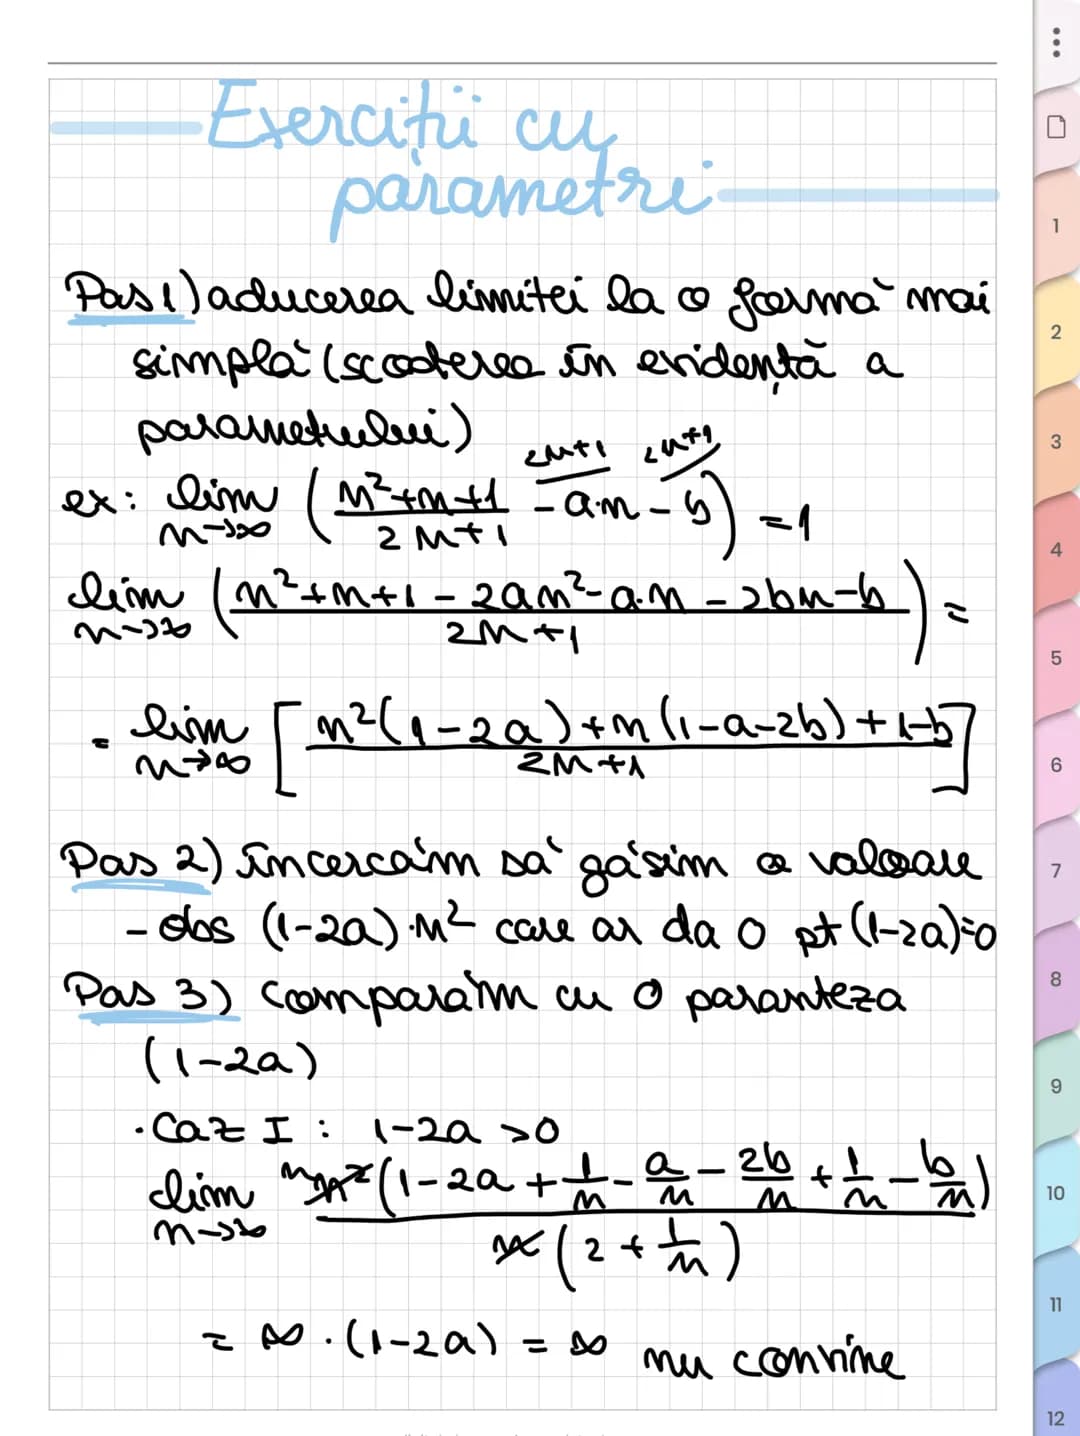 Exerciții cu
parametri
Pas 1) aducerea limitei la o formă mai
simplă (scoaterea în evidență a
parametrului)
ex: lim n→∞ ( (n²+n+1)/(2n+1) - ²ⁿ⁺¹⁾a·n - ²ⁿ⁺¹⁾b ) = 1
lim n→∞ ( (n²+n+1-2an²-a·n-2bn-b)/(2n+1) ) =
= lim n→∞ [ (n²(1-2a)+n(1-a-2b)+1-b)/(2n+1) ]
Pas 2) încercăm să găsim o valoare
- obs (1-2a)·n² care ar da 0 pt (1-2a)=0
Pas 3) comparăm cu 0 paranteza
(1-2a)
· Caz I : 1-2a >0
lim n→∞ n n²(1-2a + 1/n - a/n - 2b/n + 1/n - b/n) / n(2 + 1/n)
= ∞ · (1-2a) = ∞ nu convine
1
2
3
4
5
6
7
8
9
10
11
12